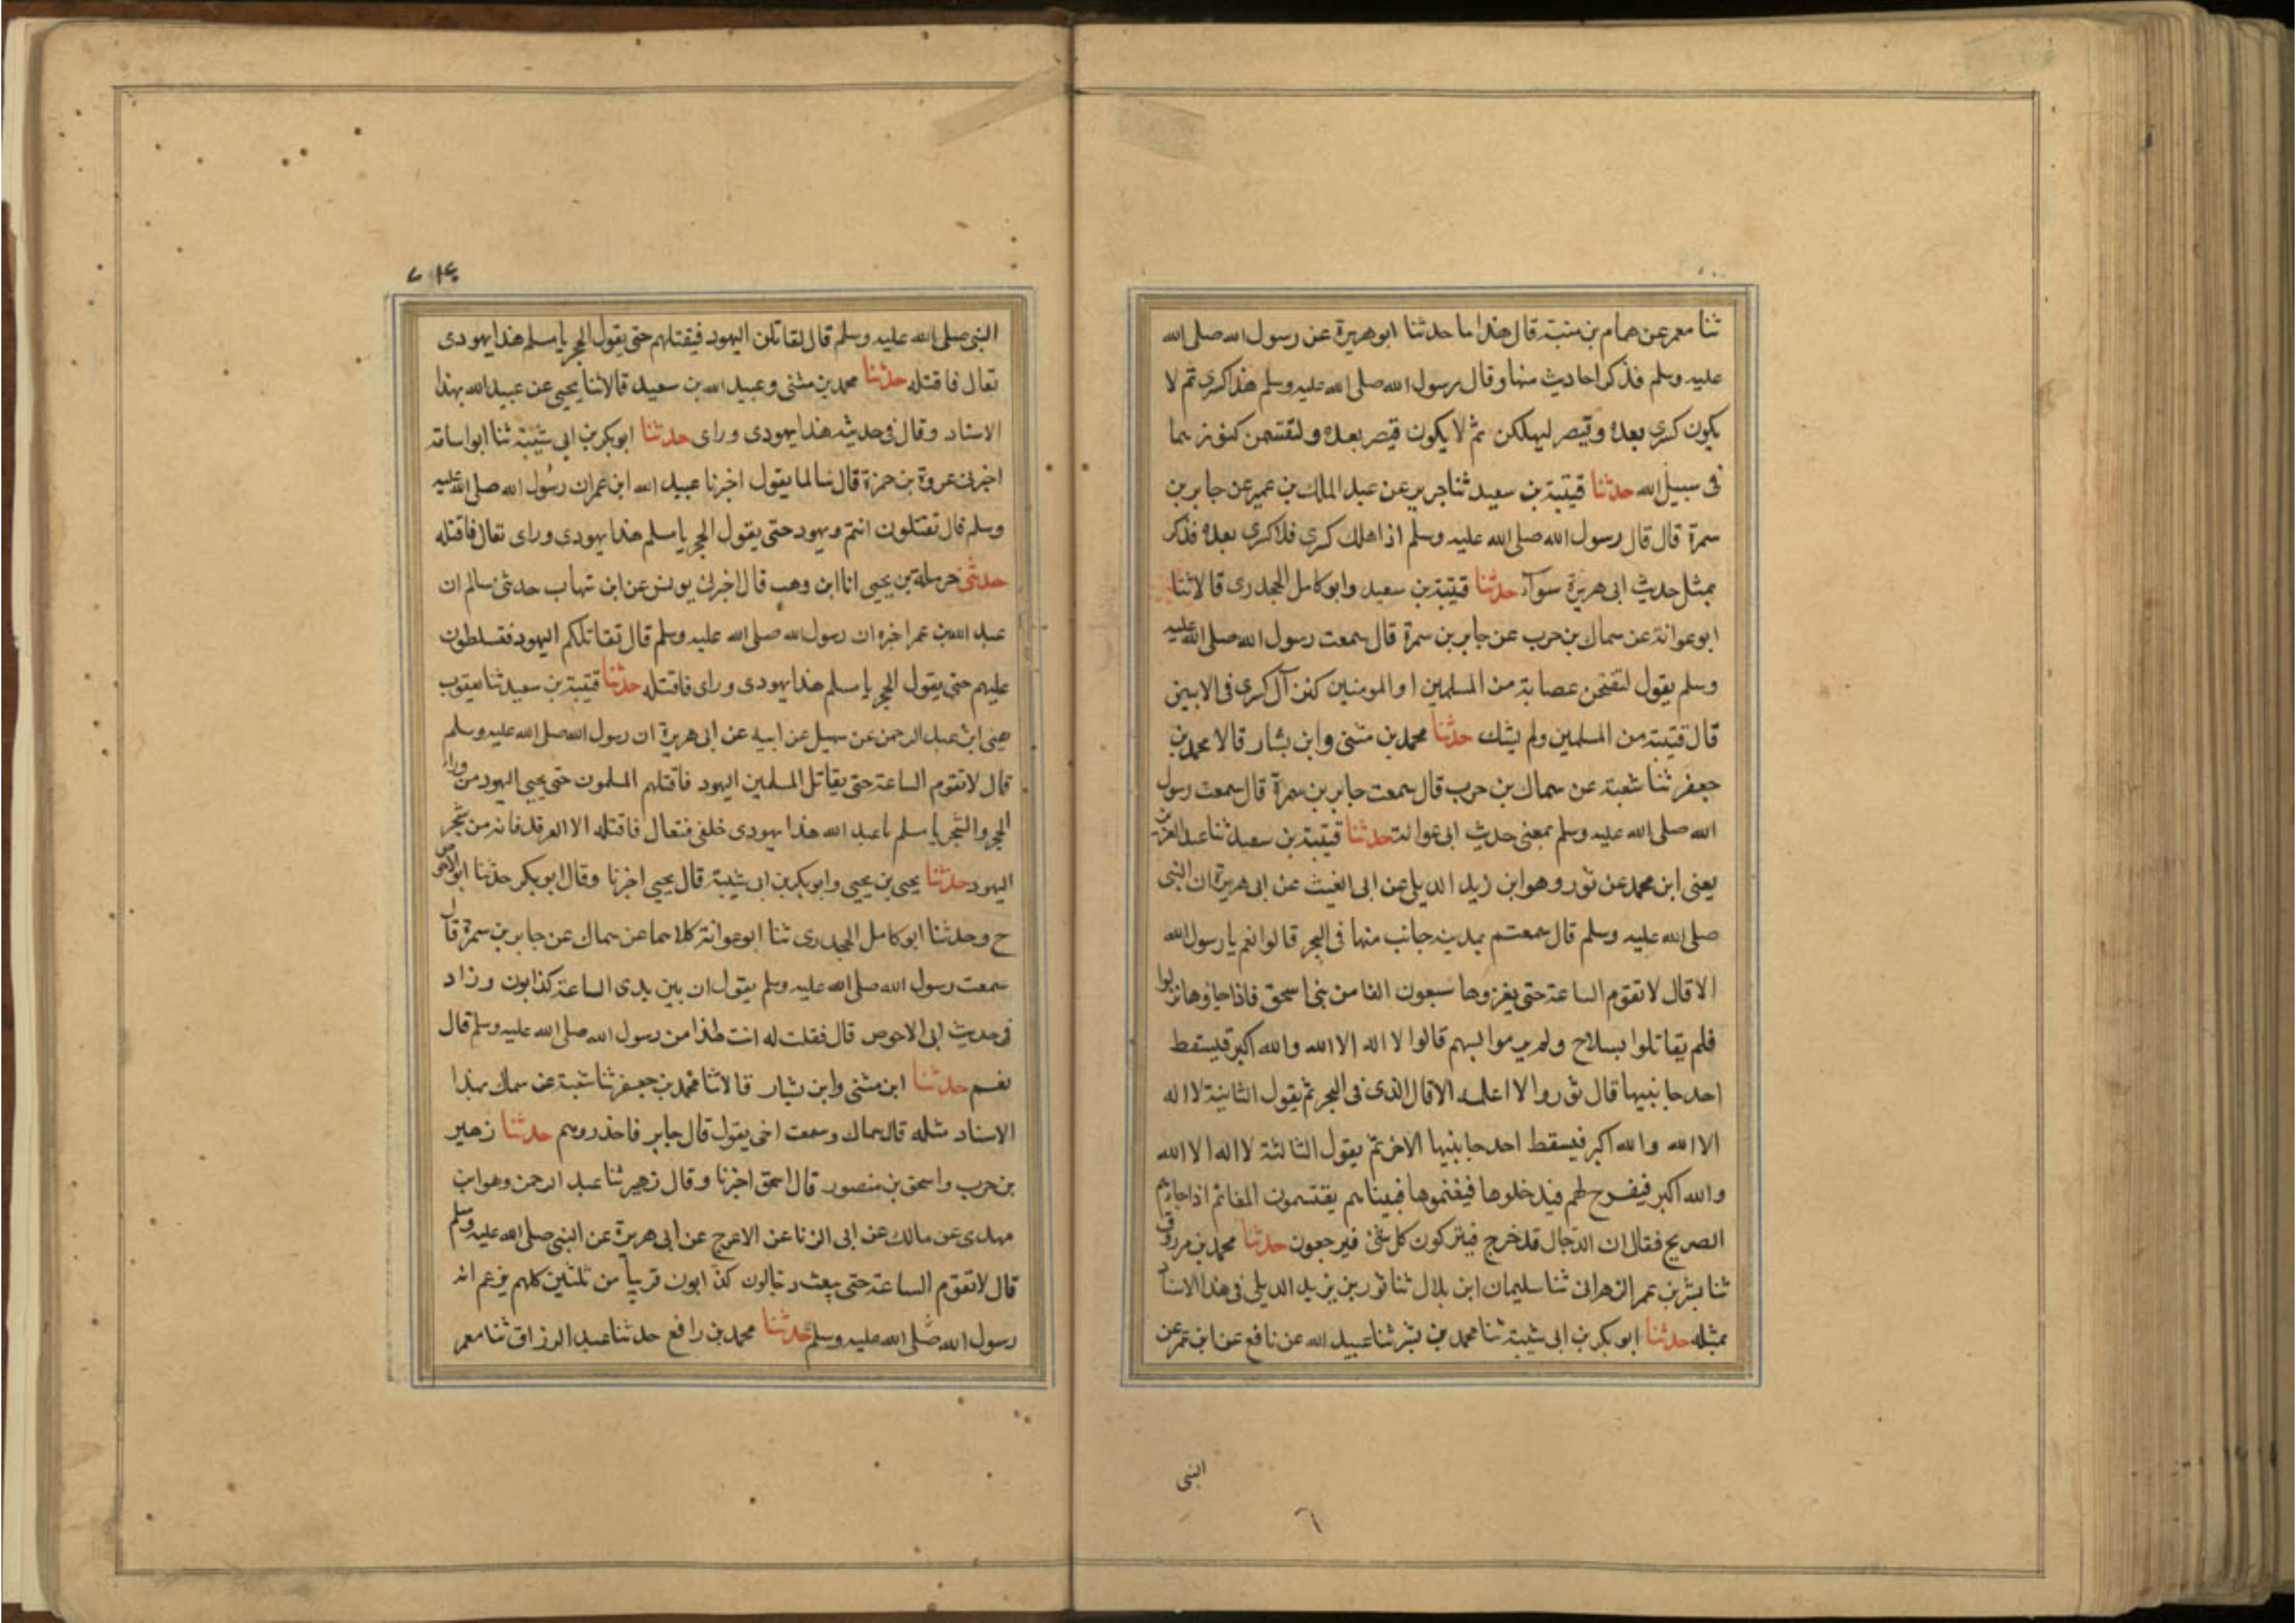 ثنا معمر عن همام بن منبة قال هذا ما حدثنا ابو هريرة عن رسول الله صلى الله
عليه وسلم فذكر احاديث منها وقال رسول الله صلى الله عليه وسلم هذا كسرى ثم لا
يكون كسرى بعده وقيصر ليهلكن ثم لا يكون قيصر بعده ولتقسمن كنوزهما
فى سبيل الله حدثنا قيتبة بن سعيد ثنا جرير عن عبد الملك بن عمير عن جابر بن
سمرة قال قال رسول الله صلى الله عليه وسلم اذا هلك كسرى فلا كسرى بعده فذكر
بمثل حديث ابى هريرة سوآء حدثنا قتيبة بن سعيد وابو كامل الجحدرى قالا ثنا
ابو عوانة عن سماك بن حرب عن جابر بن سمرة قال سمعت رسول الله صلى الله عليه
وسلم يقول لتفتحن عصابة من المسلمين او المومنين كنز آل كسرى فى الابيض
قال قتيبة من المسلمين ولم يشك حدثنا محمد بن مثنى وابن بشار قالا محمد بن
جعفر ثنا شعبة عن سماك بن حرب قال سمعت جابر بن سمرة قال سمعت رسول
الله صلى الله عليه وسلم بمعنى حديث ابى عوانة حدثنا قيتبة بن سعيد ثنا عبد العزيز
يعنى ابن محمد عن ثور وهو ابن زيد الديلى عن ابى الغيث عن ابى هريرة ان النبى
صلى الله عليه وسلم قال سمعتم بمدينه جانب منها فى البحر قالوا نعم يا رسول الله
الا قال لا تقوم الساعة حتى يغزوها سبعون الفا من بنى اسحق فاذا جاؤها نزلوا
فلم يقاتلوا بسلاح ولم يرموا بسهم قالوا لا اله الا الله والله اكبر فيسقط
احد جانبيها قال ثور ولا اعلمه الا قال الذى فى البحر ثم يقول الثانية لا اله
الا الله والله اكبر فيسقط احد جانبيها الاخر ثم يقول الثالثة لا اله الا الله
والله اكبر فيفرج لهم فيدخلوها فيغنموها فبينا هم يقتسمون المغانم اذا جاءهم
الصريح فقال ان الدجال قد خرج فيتركون كل شئ فيرجعون حدثنا محمد بن مرزوق
ثنا بشر بن عمر الزهرانى ثنا سليمان ابن بلال ثنا ثور بن يزيد الديلى فى هذا الاسناد
بمثله حدثنا ابو بكر بن ابى شيبة ثنا محمد بن بشر ثنا عبيد الله عن نافع عن ابن عمر عن
النبى
٦
النبى صلى الله عليه وسلم قال لتقاتلن اليهود فيقتلهم حتى يقول الحجر يا مسلم هذا يهودى
تعال فاقتله حدثنا محمد بن مثنى وعبيد الله بن سعيد قالا ثنا يحيى عن عبيد الله بهذا
الاسناد وقال فى حديثه هذا يهودى وراى حدثنا ابو بكر بن ابى شيبة ثنا ابو اسامة
اخبرنى عروة بن حمزة قال سالما يقول اخبرنا عبيد الله ابن عمر ان رسول الله صلى الله عليه
وسلم قال تقتلون انتم ويهود حتى يقول الحجر يا مسلم هذا يهودى وراى تعال فاقتله
حدثنى حرملة بن يحيى انا ابن وهب قال اخبرنى يونس عن ابن شهاب حدثنى سالم ان
عبد الله بن عمر اخبره ان رسول الله صلى الله عليه وسلم قال تقاتلكم اليهود فتسلطون
عليهم حتى يقول الحجر يا مسلم هذا يهودى وراى فاقتله حدثنا قتيبة بن سعيد ثنا يعقوب
يعنى ابن عبد الرحمن عن سهيل عن ابيه عن ابى هريرة ان رسول الله صلى الله عليه وسلم
قال لا تقوم الساعة حتى يقاتل المسلمين اليهود فاقتلهم المسلمون حتى يحيى اليهود من وراء
الحجر والشجر يا مسلم يا عبد الله هذا يهودى خلفى فتعال فاقتله الا الغرقد فانه من شجر
اليهود حدثنا يحيى بن يحيى وابو بكر بن ابى شيبة قال يحيى اخبرنا وقال ابو بكر حدثنا ابو الاحوص
ح وحدثنا ابو كامل الجحدرى ثنا ابو عوانة كلاهما عن سماك عن جابر بن سمرة قال
سمعت رسول الله صلى الله عليه وسلم يقول ان بين يدى الساعة كذابون وزاد
فى حديث ابى الاحوص قال فقلت له انت هذا من رسول الله صلى الله عليه وسلم قال
نعم حدثنا ابن مثنى وابن بشار قالا ثنا محمد بن جعفر ثنا شعبة عن سماك بهذا
الاسناد مثله قال سماك وسمعت اخى يقول قال جابر فاحذروهم حدثنا زهير
بن حرب واسحق بن منصور قال اسحق اخبرنا وقال زهير ثنا عبد الرحمن وهو ابن
مهدى عن مالك عن ابى الزنا عن الاعرج عن ابى هريرة عن النبى صلى الله عليه وسلم
قال لا تقوم الساعة حتى يبعث دجالون كذابون قريبا من ثلثين كلهم يزعم انه
رسول الله صلى الله عليه وسلم حدثنا محمد بن رافع حدثنا عبد الرزاق ثنا معمر